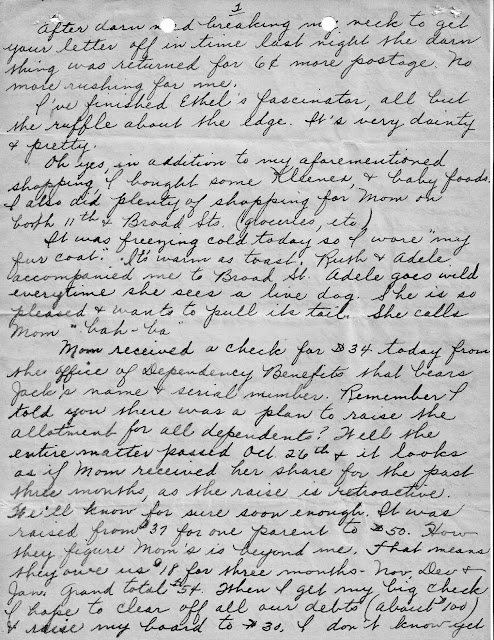 1
After darn need breaking my neck to get
your letter off in time last night the darn
thing was returned for 6¢ more postage. No
more rushing for me.
I've finished Ethel's fascinator, all but
the ruffle about the edge. It's very dainty
& pretty.
Oh yes, in addition to my aforementioned
shopping, I bought some Kleenex, & baby foods.
I also did plenty of shopping for Mom on
both 11th & Broad Sts. (groceries, etc.)
It was freezing cold today so I wore "my
fur coat". It's warm as toast. Ruth & Adele
accompanied me to Broad St. Adele goes wild
everytime she sees a live dog. She is so
pleased & wants to pull its tail. She calls
Mom "bah-ba"
Mom received a check for $34 today from
the Office of Dependency Benefits that bears
Jack's name & serial number. Remember I
told you there was a plan to raise the
allotment for all dependents? Well the
entire matter passed Oct 26th & it looks
as if Mom received her share for the past
three months, as the raise is retroactive.
We'll know for sure soon enough. It was
raised from $37 for one parent to $50. How
they figure Mom's is beyond me. That means
they owe us $18 for three months - Nov, Dec &
Jan. Grand total $54. When I get my big check
I hope to clear off all our debts (about $100)
& raise my board to $30. I don't know yet